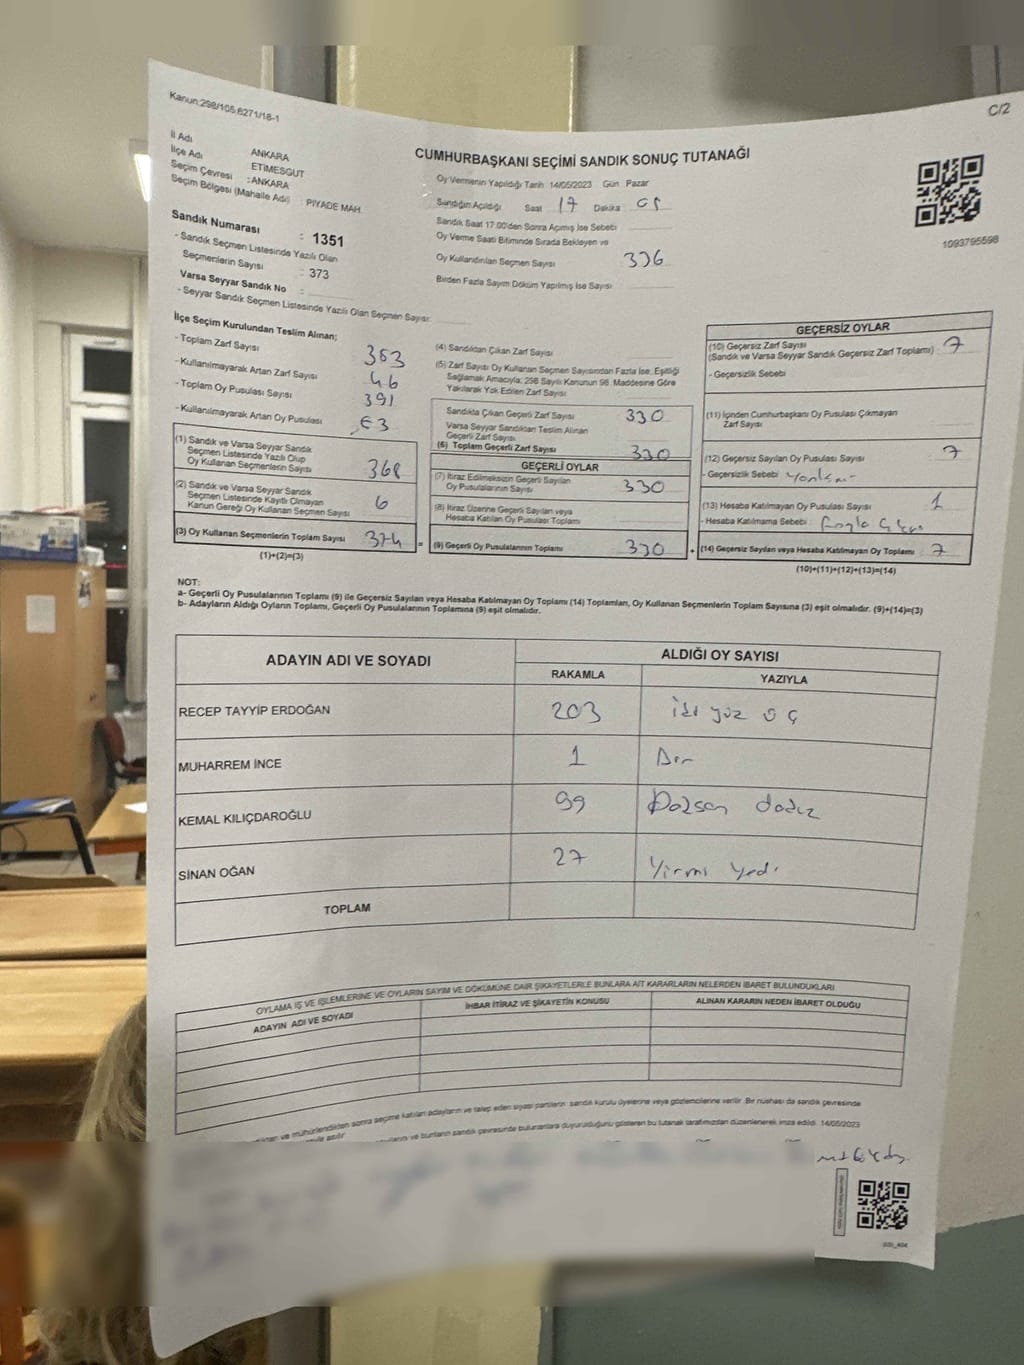 Kanun:298/105.6271/18-1
C/2
İl Adı ANKARA
İlçe Adı ETİMESGUT
Seçim Çevresi :ANKARA
Seçim Bölgesi (Mahalle Adı) : PİYADE MAH
CUMHURBAŞKANI SEÇİMİ SANDIK SONUÇ TUTANAĞI
Oy Vermenin Yapıldığı Tarih 14/05/2023 Gün Pazar
Sandığın Açıldığı Saat 17 Dakika 05
Sandık Saat 17.00'den Sonra Açılmış İse Sebebi
Oy Verme Saati Bitiminde Sırada Bekleyen ve
Oy Kullandırılan Seçmen Sayısı 336
Birden Fazla Sayım Döküm Yapılmış İse Sayısı
1093795598
Sandık Numarası : 1351
- Sandık Seçmen Listesinde Yazılı Olan
Seçmenlerin Sayısı : 373
Varsa Seyyar Sandık No :
- Seyyar Sandık Seçmen Listesinde Yazılı Olan Seçmen Sayısı:
İlçe Seçim Kurulundan Teslim Alınan;
- Toplam Zarf Sayısı 383
- Kullanılmayarak Artan Zarf Sayısı 46
- Toplam Oy Pusulası Sayısı 391
- Kullanılmayarak Artan Oy Pusulası
(1) Sandık ve Varsa Seyyar Sandık
Seçmen Listesinde Yazılı Olup
Oy Kullanan Seçmenlerin Sayısı 368
(2) Sandık ve Varsa Seyyar Sandık
Seçmen Listesinde Kayıtlı Olmayan
Kanun Gereği Oy Kullanan Seçmen Sayısı 6
(3) Oy Kullanan Seçmenlerin Toplam Sayısı 374 =
(1)+(2)=(3)
(4) Sandıktan Çıkan Zarf Sayısı
(5) Zarf Sayısı Oy Kullanan Seçmen Sayısından Fazla İse, Eşitliği
Sağlamak Amacıyla; 298 Sayılı Kanunun 98. Maddesine Göre
Yakılarak Yok Edilen Zarf Sayısı
Sandıkta Çıkan Geçerli Zarf Sayısı 330
Varsa Seyyar Sandıktan Teslim Alınan
Geçerli Zarf Sayısı
(6) Toplam Geçerli Zarf Sayısı 330
GEÇERLİ OYLAR
(7) İtiraz Edilmeksizin Geçerli Sayılan
Oy Pusulalarının Sayısı 330
(8) İtiraz Üzerine Geçerli Sayılan veya
Hesaba Katılan Oy Pusulası Toplamı
(9) Geçerli Oy Pusulalarının Toplamı 330 +
GEÇERSİZ OYLAR
(10) Geçersiz Zarf Sayısı
(Sandık ve Varsa Seyyar Sandık Geçersiz Zarf Toplamı) : 7
- Geçersizlik Sebebi
(11) İçinden Cumhurbaşkanı Oy Pusulası Çıkmayan
Zarf Sayısı
(12) Geçersiz Sayılan Oy Pusulası Sayısı 7
- Geçersizlik Sebebi
(13) Hesaba Katılmayan Oy Pusulası Sayısı 1
- Hesaba Katılmama Sebebi : fazla çıkan
(14) Geçersiz Sayılan veya Hesaba Katılmayan Oy Toplamı 7
(10)+(11)+(12)+(13)=(14)
NOT:
a- Geçerli Oy Pusulalarının Toplamı (9) ile Geçersiz Sayılan veya Hesaba Katılmayan Oy Toplamı (14) Toplamları, Oy Kullanan Seçmenlerin Toplam Sayısına (3) eşit olmalıdır. (9)+(14)=(3)
b- Adayların Aldığı Oyların Toplamı, Geçerli Oy Pusulalarının Toplamına (9) eşit olmalıdır.
ADAYIN ADI VE SOYADI
ALDIĞI OY SAYISI
RAKAMLA YAZIYLA
RECEP TAYYİP ERDOĞAN 203 iki yüz üç
MUHARREM İNCE 1 Bir
KEMAL KILIÇDAROĞLU 99 Doksan dokuz
SİNAN OĞAN 27 Yirmi yedi
TOPLAM
OYLAMA İŞ VE İŞLEMLERİNE VE OYLARIN SAYIM VE DÖKÜMÜNE DAİR ŞİKAYETLERLE BUNLARA AİT KARARLARIN NELERDEN İBARET BULUNDUKLARI
ADAYIN ADI VE SOYADI
İHBAR İTİRAZ VE ŞİKAYETİN KONUSU
ALINAN KARARIN NEDEN İBARET OLDUĞU
ve mühürlendikten sonra seçime katılan adayların ve talep eden siyasi partilerin sandık kurulu üyelerine veya gözlemcilerine verilir. Bir nüshası da sandık çevresinde
ve bunların sandık çevresinde bulunanlara duyurulduğunu gösteren bu tutanak tarafımızdan düzenlenerek imza edildi. 14/05/2023